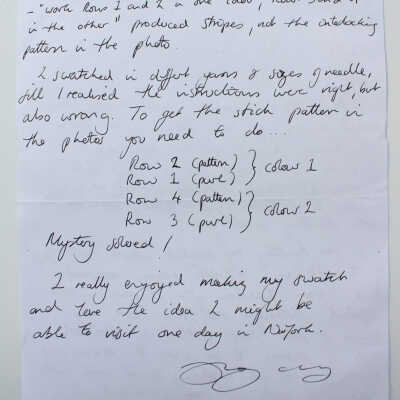 - "work Rows 1 and 2 in one colour,
in the other" produced stripes, not the interlocking
pattern in the photo.
I swatched in differt yarns & sizes of needle,
till I realised the instructions were right, but
also wrong. To get the stich pattern in
the photos you need to do...
Row 2 (pattern) } colour 1
Row 1 (purl)
Row 4 (pattern) } colour 2
Row 3 (purl)
Mystery solved!
I really enjoyed making my swatch
and love the idea I might be
able to visit one day in New York.